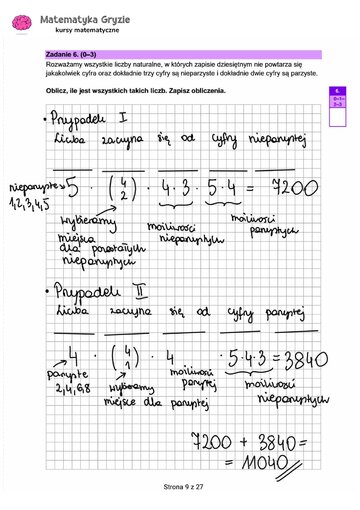 Matematyka Gryzie
kursy matematyczne
Zadanie 6. (0–3)
Rozważamy wszystkie liczby naturalne, w których zapisie dziesiętnym nie powtarza się
jakakolwiek cyfra oraz dokładnie trzy cyfry są nieparzyste i dokładnie dwie cyfry są parzyste.
Oblicz, ile jest wszystkich takich liczb. Zapisz obliczenia.
6.
0–1–
2–3
• Przypadek I
Liczba zaczyna się od cyfry nieparzystej
nieparzyste → 5 · (4 2) · 4 · 3 · 5 · 4 = 7200
1,2,3,4,5
wybieramy miejsca dla pozostałych nieparzystych
możliwości nieparzystych
możliwości parzystych
• Przypadek II
Liczba zaczyna się od cyfry parzystej
4 · (4 1) · 4 · 5·4·3 = 3840
parzyste
2,4,6,8
wybieramy miejsce dla parzystej
możliwości parzystej
możliwości nieparzystych
7200 + 3840 =
= 11040
Strona 9 z 27